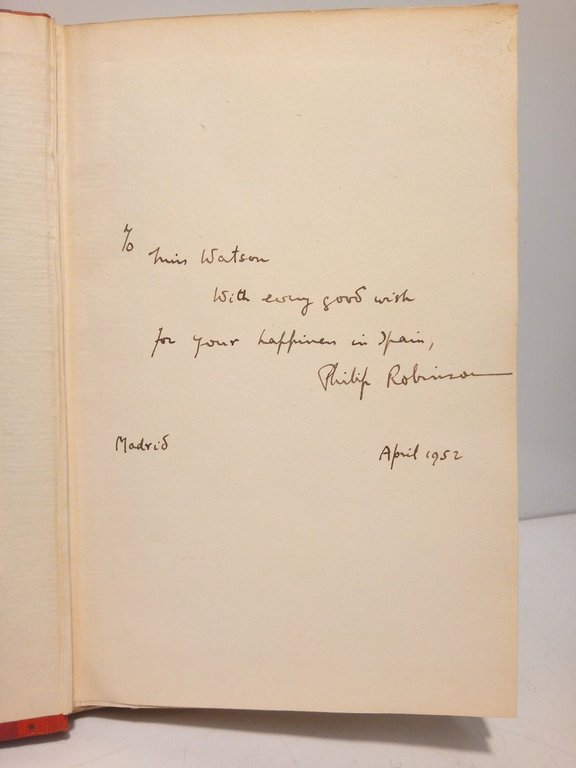 To Miss Watson
With every good wish
for your happiness in Spain,
Philip Robinson
Madrid April 1952